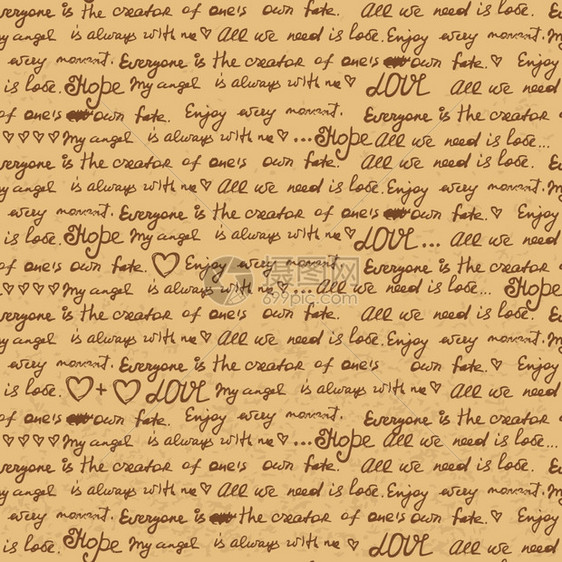 Everyone is the creator of one's own fate. All we need is love. Enjoy
My angel is always with me ♡ All we need is love. Enjoy every moment. My
every moment. Everyone is the creator of one's own fate. ♡ Enjoy
is love. Hope My angel is always with me ♡ LOVE All we need
of one's own fate. Enjoy every moment. Everyone is the creator
♡♡♡♡ My angel is always with me ♡ ... Hope All we need is love...
Everyone is the creator of one's own fate. All we need is love. Enjoy
My angel is always with me ♡ All we need is love. Enjoy every moment. My
every moment. Everyone is the creator of one's own fate. ♡ Enjoy
is love. Hope My angel is always with me ♡ LOVE... All we need
of one's own fate. ♡ Enjoy every moment. Everyone is the creator
摄图网
699pic.com
♡♡♡♡♡ My angel is always with me ♡ ... All we need is love... Hope
Everyone is the creator of one's own fate. All we need is love. Enjoy
My angel is always with me ♡ All we need is love. Enjoy every moment. My
every moment. Everyone is the creator of one's own fate. ♡ Enjoy
is love. ♡ + ♡ LOVE My angel is always with me ♡ All we need
of one's own fate. Enjoy every moment. Everyone is the creator
♡♡♡♡ My angel is always with me ♡ ... Hope All we need is love...
Everyone is the creator of one's own fate. All we need is love. Enjoy
My angel is always with me ♡ All we need is love. Enjoy every moment. My
every moment. Everyone is the creator of one's own fate. ♡ Enjoy
is love. Hope My angel is always with me ♡ LOVE All we need